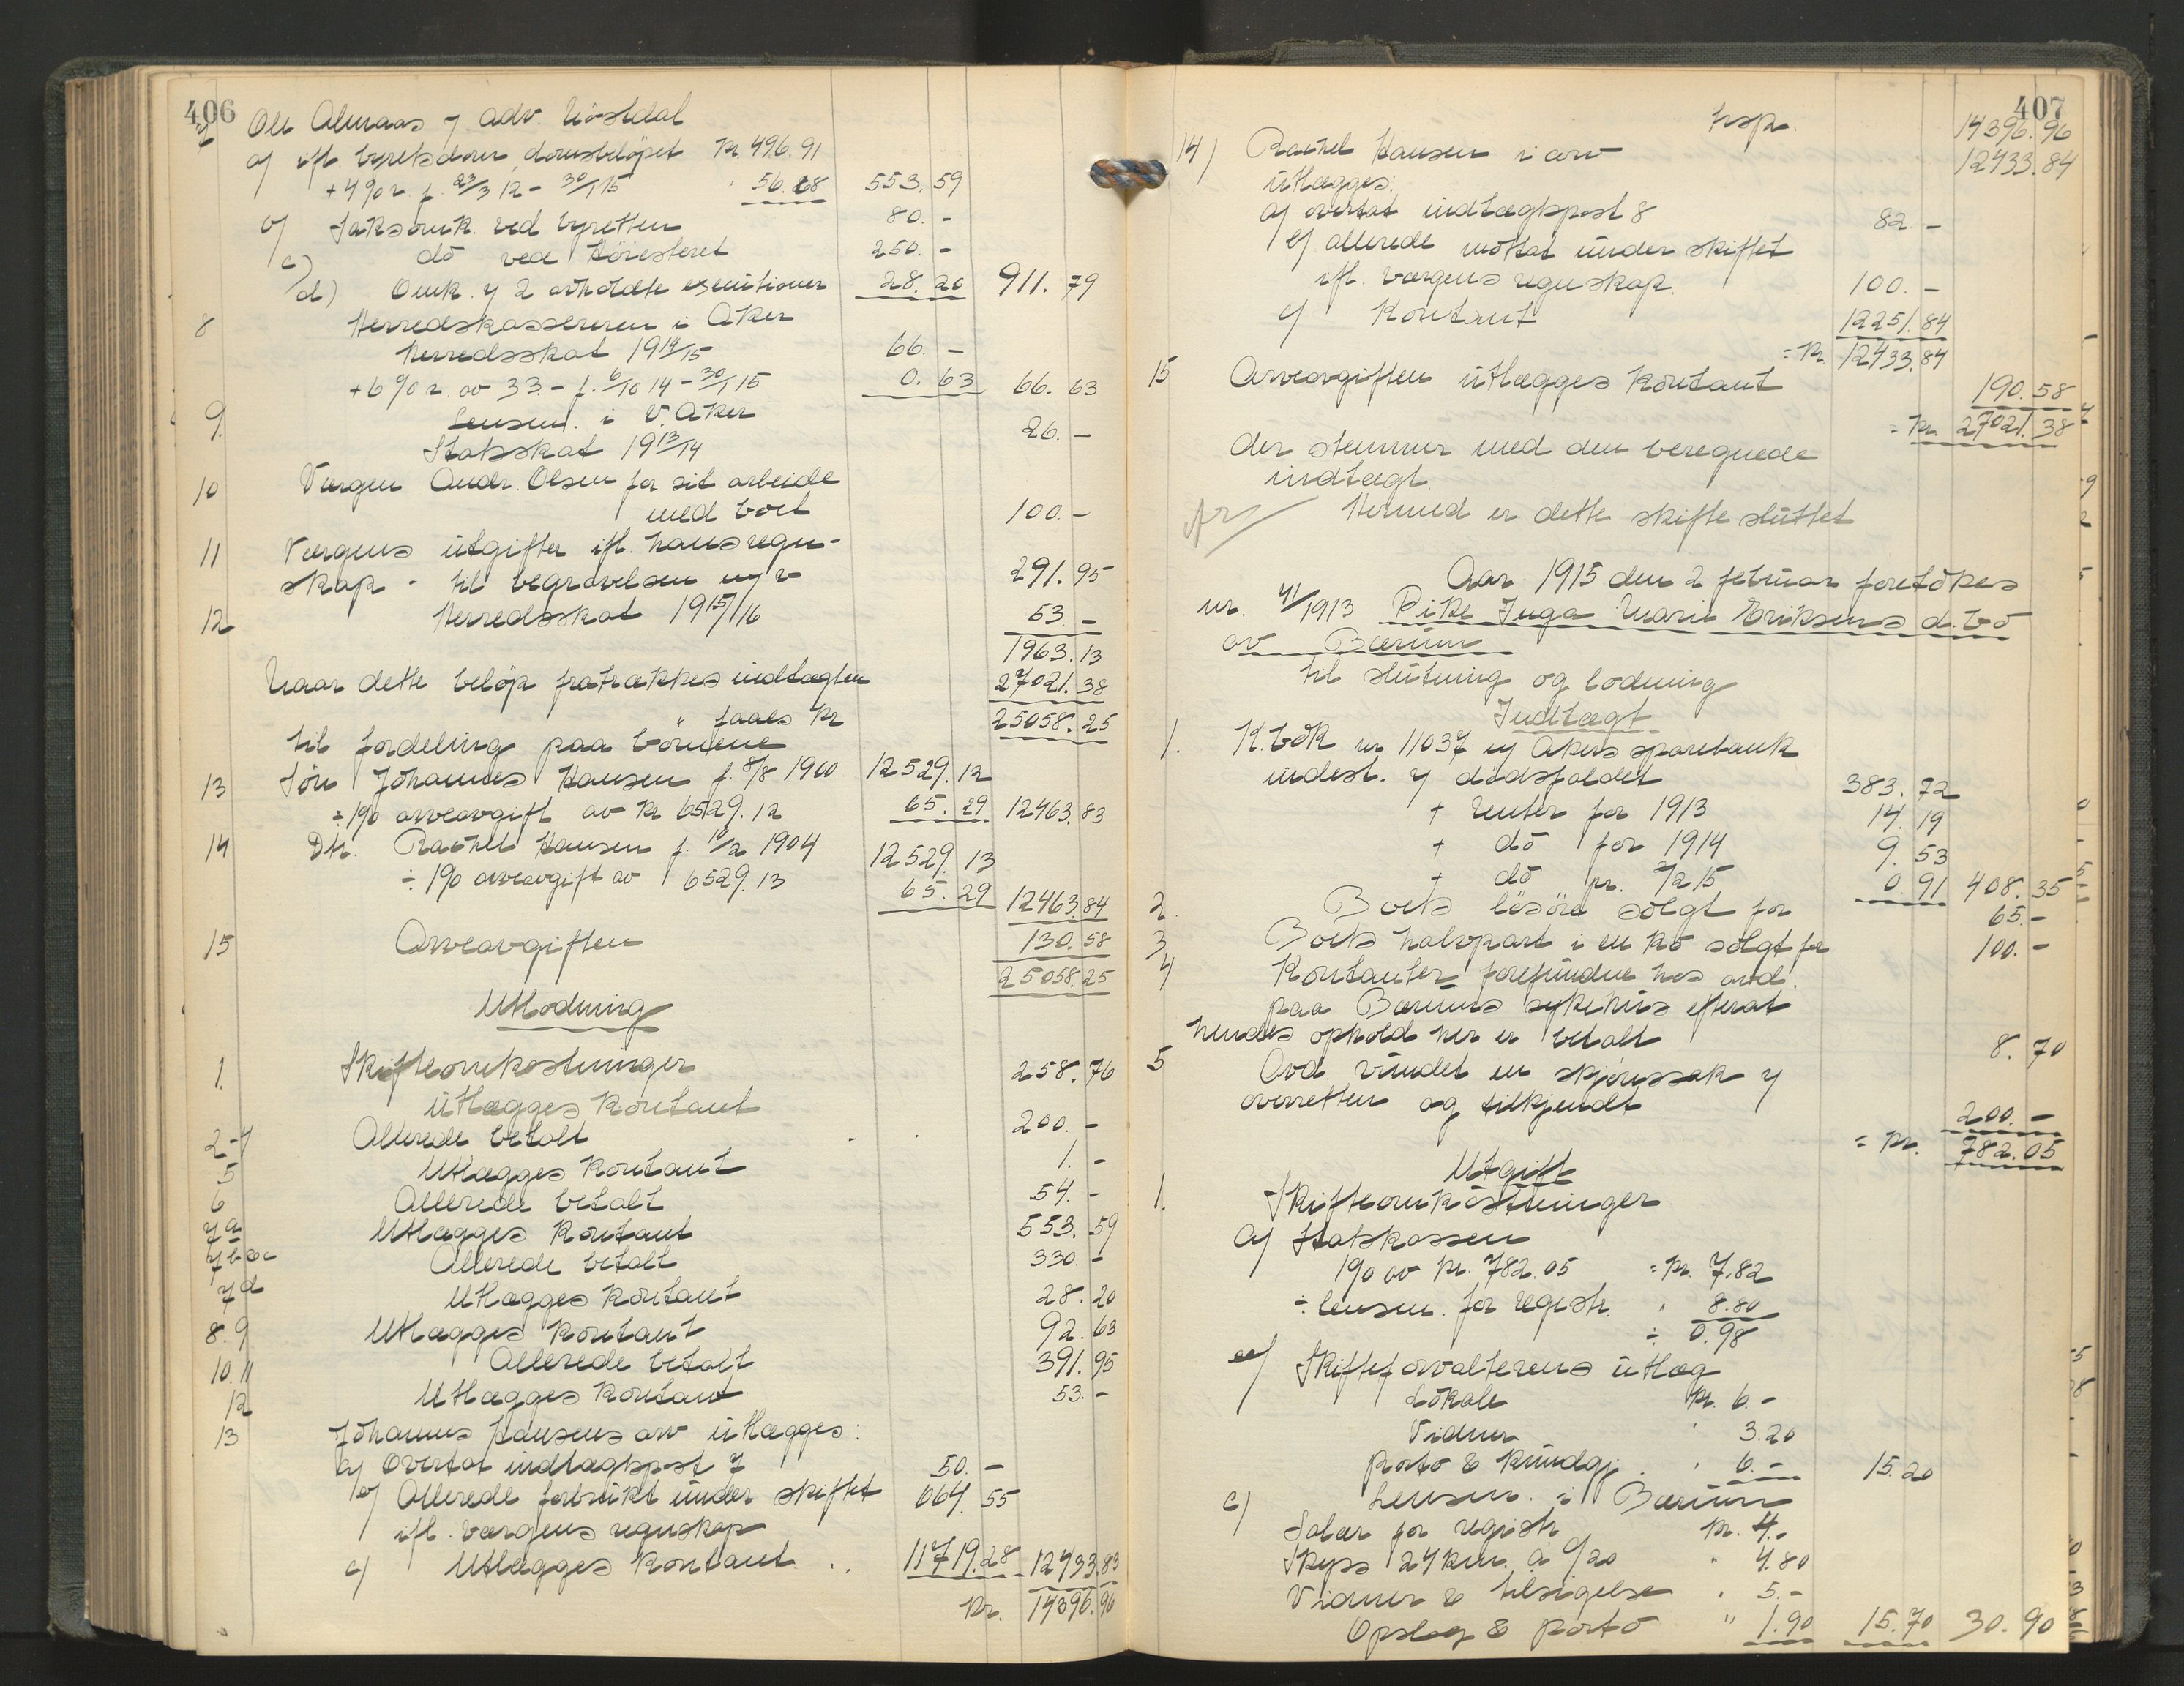 406
7 Ole Almaas v. adv.
a) ifl. byretsdom, domsbeløpet kr 496.91
+ 4% r. f. 23/3 12 - 30/1 15 " 56.68 553.59
b) Saksomk. ved byretten 80. -
c) do ved Höiesteret 250. -
d) Omk. v 2 avholdte exeutioner 28.20 911.79
8 Herredskassereren i Aker
Herredsskat 1914/15 66. -
+ 6% r. av 33.- f. 6/10 14 - 30/1 15 0.63 66.63
9. Lensm. i V. Aker
Statsskat 1913/14 26. -
10 Vergen Andr. Olsen for sit arbeide
med boet 100. -
11 Vergens utgifter ifl. hans regn-
skap - til begravelsen m v 291.95
12 Herredsskat 1915/16 53. -
1963.13
Naar dette beløp fratrækkes indtægten 27021.38
" faaes kr 25058.25
til fordeling paa börnene
13 Sön Johannes Hansen f. 8/8 1900 12529.12
÷ 1% arveavgift av kr 6529.12 65.29 12463.83
14 Dtr. Rachel Hansen f. 10/2 1904 12529.13
÷ 1% arveavgift av 6529.13 65.29 12463.84
15 Arveavgiften 130.58
25058.25
Utlodning
1. Skifteomkostninger
utlægges kontant 258.76
2-4 Allerede betalt 200. -
5 Utlægges kontant 1. -
6 Allerede betalt 54. -
7 a Utlægges kontant 553.59
7 b & c Allerede betalt 330. -
7 d Utlægges kontant 28.20
8. 9 Utlægges kontant 92.63
10. 11 Allerede betalt 391.95
12 Utlægges kontant 53. -
13 Johannes Hansens arv utlægges:
a) Overtat indtægtspost 7 50. -
b) Allerede forbrukt under skiftet 664.55
ifl. vergens regnskap
c) Utlægges kontant 11719.28 12433.83
Kr. 14396.96
407
Trsp. 14396.96
14) Rachel Hansen i arv 12433.84
utlægges:
a) overtat indtægtspost 8 82. -
b) allerede mottat under skiftet
ifl. vergens regnskap. 100. -
c) Kontant 12251.84
= Kr 12433.84
15 Arveavgiften utlægges kontant 190.58
= Kr. 27021.38
der stemmer med den beregnede
indtægt.
Hermed er dette skifte sluttet
Aar 1915 den 2 februar foretokes
nr. 41/1913 Pike Inga Marie Eriksens d. bo
av Bærum
til slutning og lodning
Indtægt
1. K. bok nr 11037 i Akers sparebank
indest. v dödsfaldet 383.72
+ renter for 1913 14.19
+ do for 1914 9.53
+ do pr. 7/2 15 0.91 408.35
2. Boets lösöre solgt for 65. -
3 Boets halvpart i en ko solgt for 100. -
4 Kontanter forefundne hos avd.
paa Bærums sykehus efterat
hendes ophold her er betalt 8.70
5 Avd. vundet en skjönssak v
overretten og tilkjendt 200. -
= kr. 782.05
Utgift
1. Skifteomkostninger
a) Statskassen
1% av kr. 782.05 = kr. 7.82
÷ lensm. for registr. " 8.80
÷ 0.98
b) Skifteforvalterens utlæg
Lokale kr. 6. -
Vidner " 3.20
Porto & kundgj. " 6. - 15.20
c) Lensm. i Bærum
Salær for registr kr. 4. -
Skyss 24 km. à 0/20 " 4.80
Vidner & tilsigelse " 5. -
Opslag & porto " 1.90 15.70 30.90